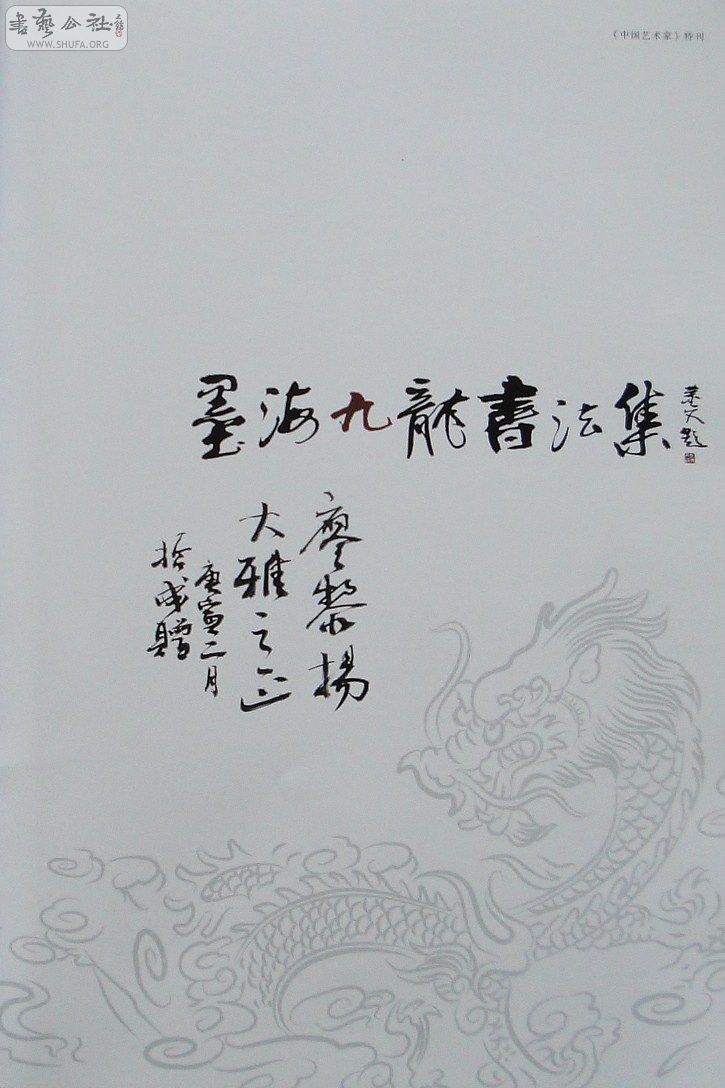 書藝公社
WWW.SHUFA.ORG
《中国艺术家》特刊
墨海九龍書法集
廖黎揚
大雅之正
庚寅二月
拾成贈